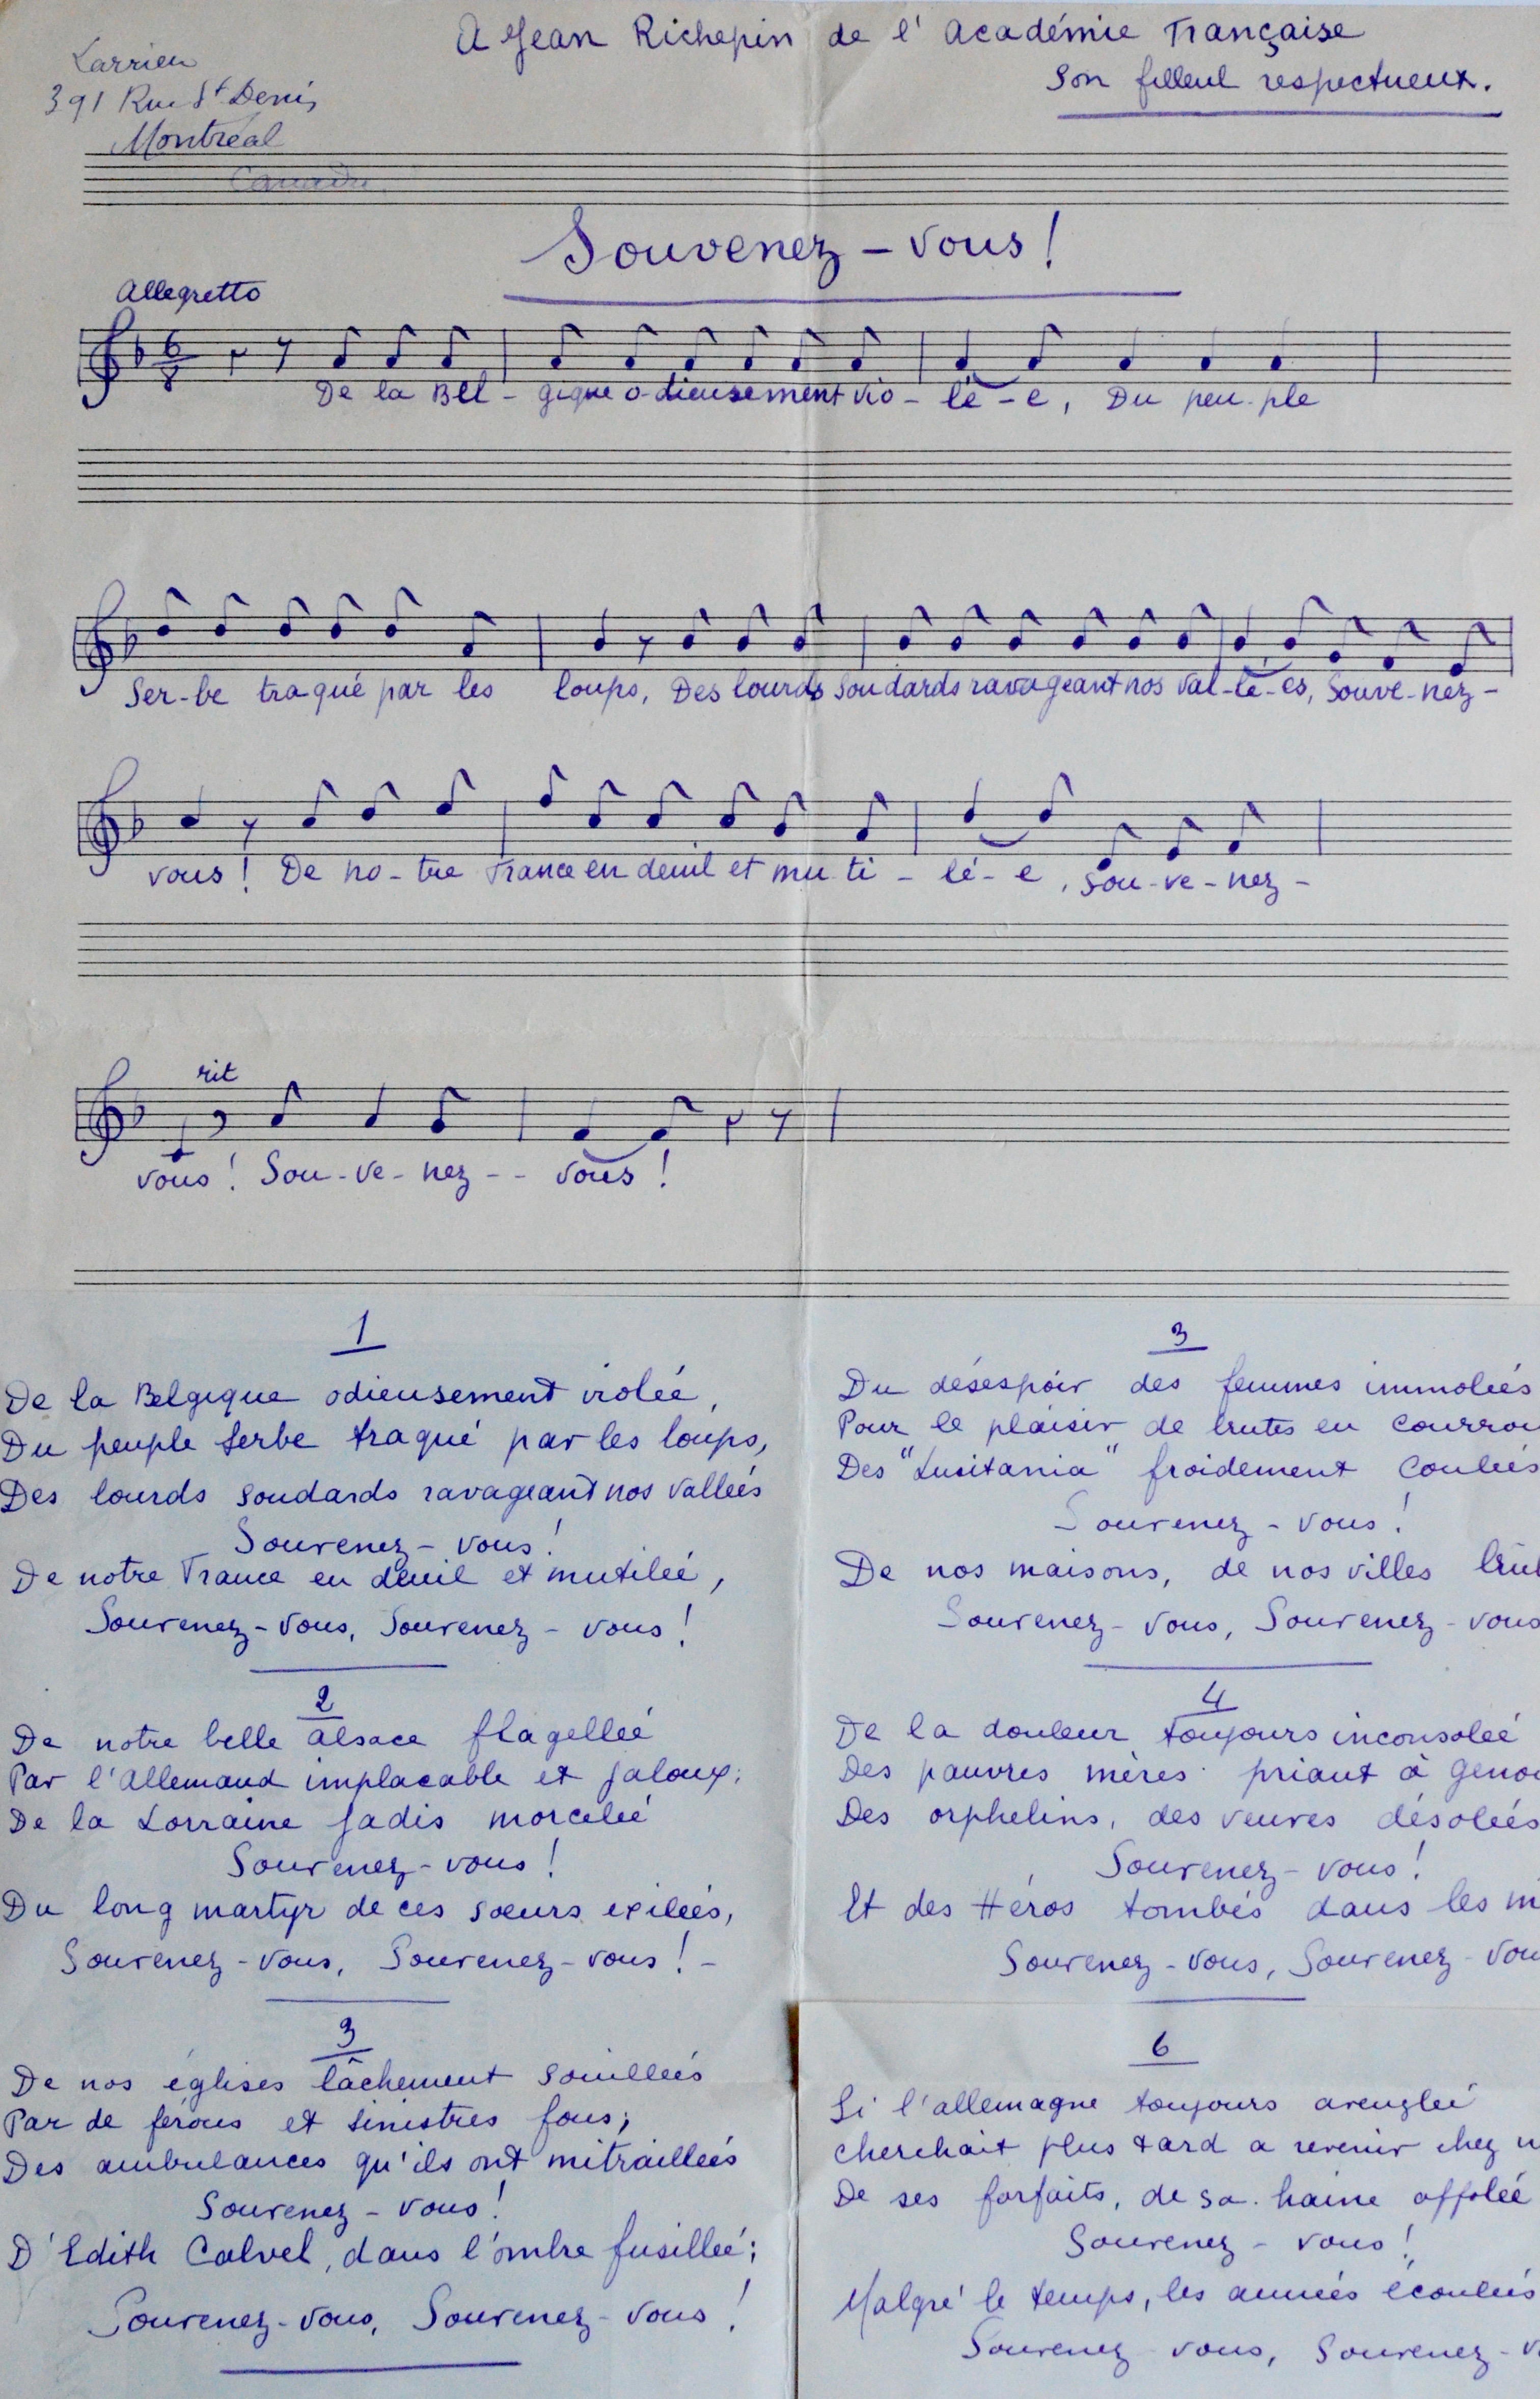 Larrieu
391 Rue St Denis
Montréal
Canada
A Jean Richepin de l'Académie Française
Son filleul respectueux.
Souvenez-vous!
Allegretto
6
8
De la Bel-gique o-dieusement vio-lé-e, Du peu-ple
Ser-be traqué par les loups, Des lourds Soudards ravageant nos val-lé-es, Souve-nez-
vous! De no-tre France en deuil et mu ti-lé-e, Sou-ve-nez-
rit
vous! Sou-ve-nez-- vous!
1
De la Belgique odieusement violée,
Du peuple Serbe traqué par les loups,
Des lourds soudards ravageant nos vallées
Souvenez-vous!
De notre France en deuil et mutilée,
Souvenez-vous, Souvenez-vous!
2
De notre belle Alsace flagellée
Par l'Allemand implacable et jaloux;
De la Lorraine jadis morcelée
Souvenez-vous!
Du long martyr de ces sœurs exilées,
Souvenez-vous, Souvenez-vous!-
3
De nos églises lâchement souillées
Par de féroces et sinistres fous;
Des ambulances qu'ils ont mitraillées
Souvenez-vous!
D'Edith Calvel, dans l'ombre fusillée;
Souvenez-vous, Souvenez-vous!
3
Du désespoir des femmes immolées
Pour le plaisir de brutes en courrou
Des "Lusitania" froidement coulées
Souvenez-vous!
De nos maisons, de nos villes brul
Souvenez-vous, Souvenez-vous
4
De la douleur toujours inconsolée
Des pauvres mères priant à genou
Des orphelins, des veuves désolées
Souvenez-vous!
Et des Héros tombés dans les m
Souvenez-vous, Souvenez-vou
6
Si l'allemagne toujours aveuglée
cherchait plus tard a revenir chez n
De ses forfaits, de sa haine affolée
Souvenez-vous!
Malgré le temps, les années écoulées
Souvenez vous, Souvenez-v